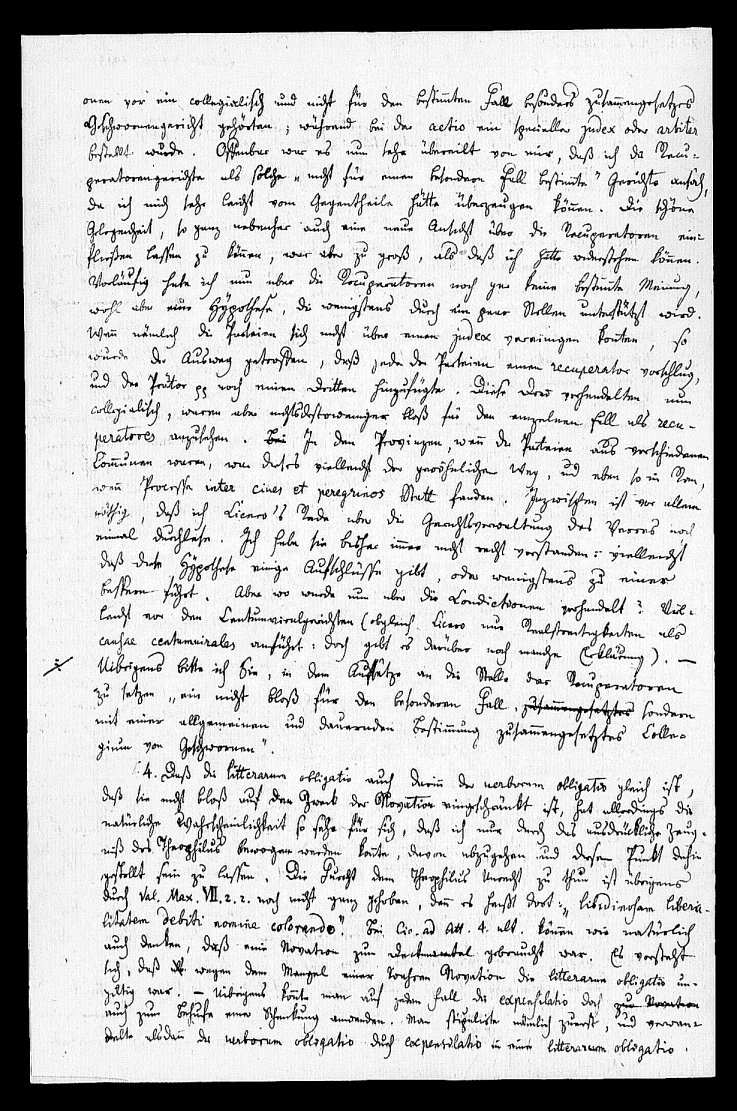 onen vor ein collegialisch und nicht für den bestimmten Fall besonders zusammengesetztes
Geschwornengericht gehörten; während bei der actio ein specieller judex oder arbiter
bestellt wurde. Offenbar war es nun sehr übereilt von mir, daß ich die Recu-
peratorengerichte als solche „nicht für einen besondern Fall bestimmte" Gerichte ansah,
da ich mich sehr leicht vom Gegentheile hätte überzeugen können. Die schöne
Gelegenheit, so ganz nebenher auch eine neue Ansicht über die Recuperatoren ein-
fließen lassen zu können, war aber zu groß, als daß ich hätte widerstehen können.
Vorläufig habe ich nun über die Recuperatoren noch gar keine bestimmte Meinung,
wohl aber eine Hypothese, die wenigstens durch ein paar Stellen unterstützt wird.
Wenn nämlich die Parteien sich nicht über einen judex vereinigen konnten, so
wurde der Ausweg getroffen, daß jede der Parteien einen recuperator vorschlug,
und der Prätor pp noch einen Dritten hinzufügte. Diese Drei verhandelten nun
collegialisch, waren aber nichtsdestoweniger bloß für den einzelnen Fall als recu-
peratores anzusehen. Bei In den Provinzen, wenn die Parteien aus verschiedenen
Communen waren, war dieses vielleicht der gewöhnliche Weg, und eben so in Rom,
wenn Processe inter cives et peregrinos Statt fanden. Inzwischen ist vor allem
nöthig, daß ich Cicero's Rede über die Gerichtsverwaltung des Verres noch
einmal durchlese. Ich habe sie bisher immer nicht recht verstanden: vielleicht
daß diese Hypothese einige Aufschlüsse gibt, oder wenigstens zu einer
bessern führt. Aber wo wurde nun über die Condictionen verhandelt? Viel-
leicht vor den Centumviralgerichten (obgleich Cicero nur Realstreitigkeiten als
causae centumvirales anführt: doch gibt es darüber noch manche Erklärung). —
Uibrigens bitte ich Sie, in dem Aufsatze an die Stelle der Recuperatoren
zu setzen „ein nicht bloß für den besonderen Fall, zusammengesetztes sondern
mit einer allgemeinen und dauernden Bestimmung zusammengesetztes Colle-
gium von Geschwornen".
4. Daß die litterarum obligatio auch darin der verborum obligatio gleich ist,
daß sie nicht bloß auf den Zweck der Novation eingeschränkt ist, hat allerdings die
natürliche Wahrscheinlichkeit so sehr für sich, daß ich nur durch das ausdrückliche Zeug-
niß des Theophilus bewogen werden konnte, davon abzugehen und diesen Punkt dahin
gestellt sein zu lassen. Die Furcht dem Theophilus Unrecht zu thun ist übrigens
durch Val. Max. VIII. 2. 2. noch nicht ganz gehoben, denn es heißt dort: „libidinosam libera-
litatem debiti nomine colorando". Bei Cic. ad Att. 4. ult. können wir natürlich
auch denken, daß eine Novation zum Deckmantel gebraucht war. Es versteht
sich, daß wegen dem Mangel einer wahren Novation die litterarum obligatio un-
giltig war. — Uibrigens konnte man auf jeden Fall die expensilatio doch zur Novation
auch zum Behufe einer Schenkung anwenden. Man stipulirte nämlich zuerst, und verwan-
delte alsdann die verborum obligatio durch expensilatio in eine litterarum obligatio.